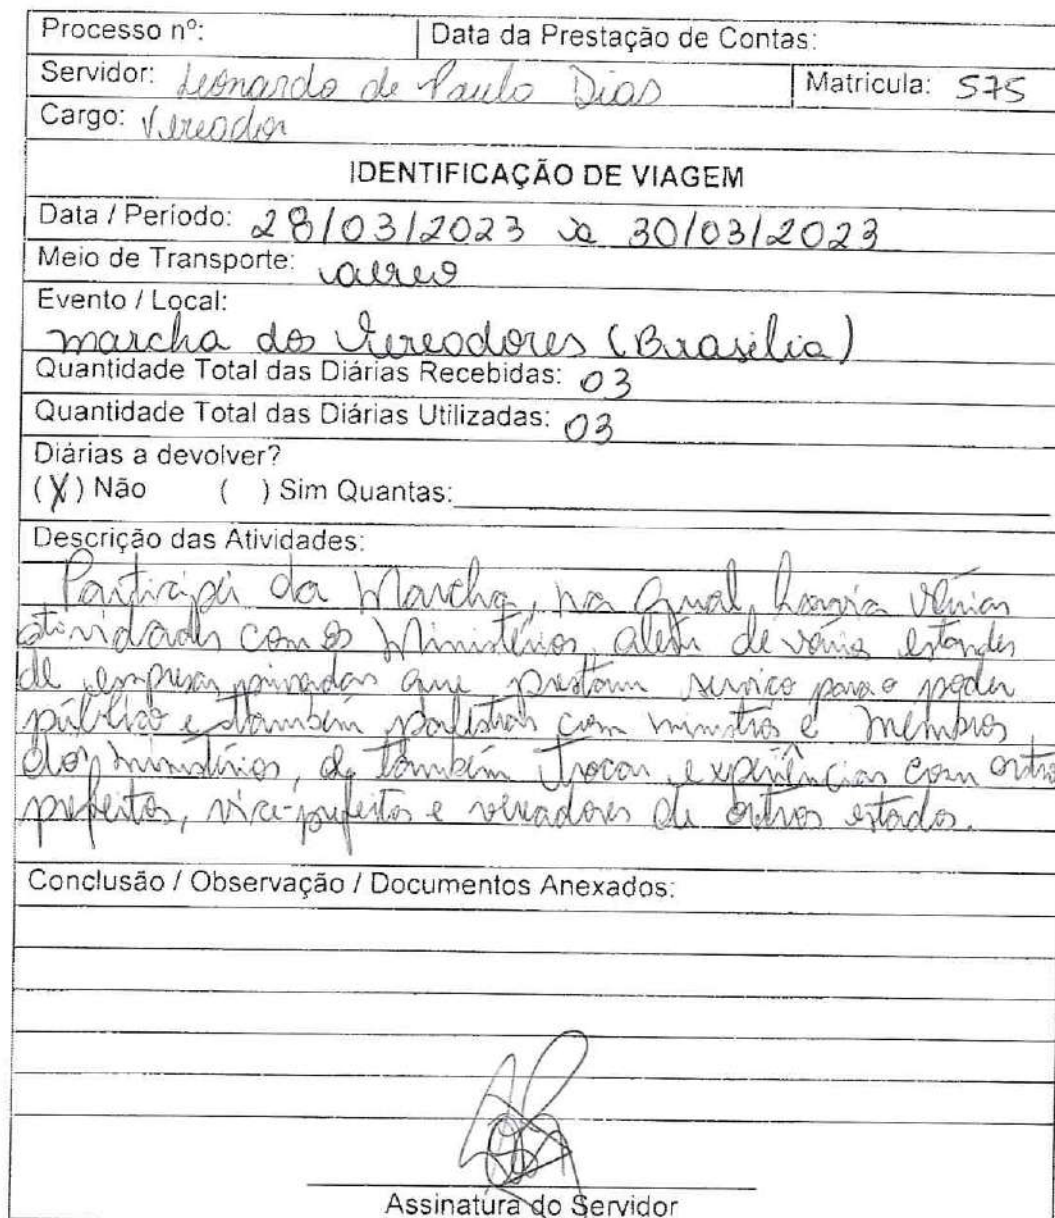 Processo nº: Data da Prestação de Contas:
Servidor: Leonardo de Paulo Dias Matricula: 575
Cargo: Vereador
IDENTIFICAÇÃO DE VIAGEM
Data / Período: 28/03/2023 à 30/03/2023
Meio de Transporte: aereo
Evento / Local:
marcha dos Vereadores (Brasilia)
Quantidade Total das Diárias Recebidas: 03
Quantidade Total das Diárias Utilizadas: 03
Diárias a devolver?
(X) Não ( ) Sim Quantas:
Descrição das Atividades:
Participei da Marcha, na qual, havia várias
atividades com os Ministérios, além de vários estandes
de empresas privadas que prestam serviço para o poder
público e também palestras com ministros e membros
dos ministérios, de também trocar experiências com outros
prefeitos, vice-prefeitos e vereadores de outros estados.
Conclusão / Observação / Documentos Anexados:
Assinatura do Servidor